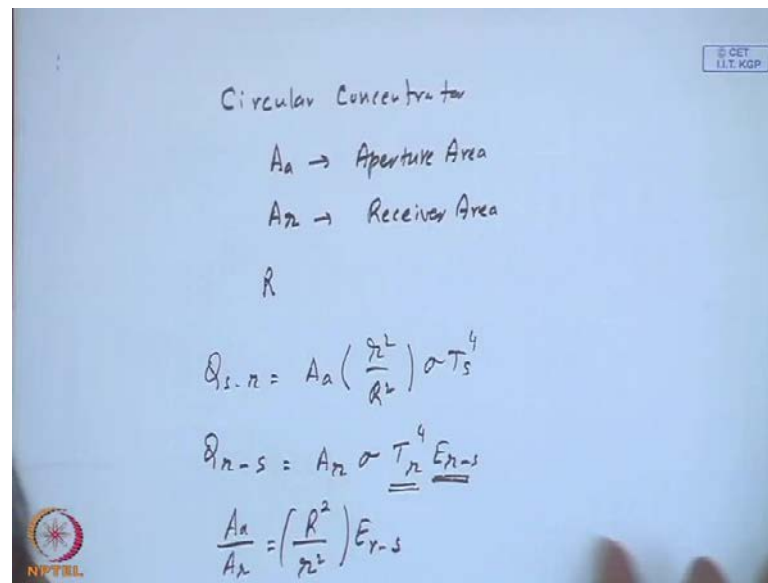 © CET
I.I.T. KGP
Circular Concentrator
Aa → Aperture Area
Ar → Receiver Area
R
Qs-r = Aa (r²/R²) σ Ts⁴
Qr-s = Ar σ Tr⁴ Er-s
Aa/Ar = (R²/r²) Er-s
NPTEL